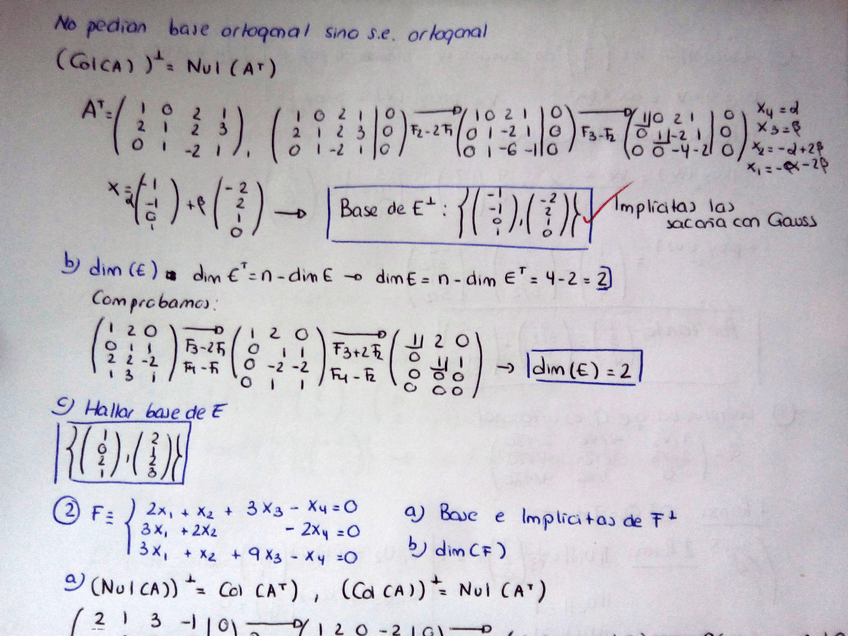 No pedian base ortogonal sino s.e. ortogonal
(Col(A))⊥ = Nul(Aᵀ)
Aᵀ = (1 0 2 1; 2 1 2 3; 0 1 -2 1), (1 0 2 1 | 0; 2 1 2 3 | 0; 0 1 -2 1 | 0) → F2-2F1 (1 0 2 1 | 0; 0 1 -2 1 | 0; 0 1 -6 -1 | 0) → F3-F2 (1 0 2 1 | 0; 0 1 -2 1 | 0; 0 0 -4 -2 | 0) x4 = α x3 = β x2 = -α+2β x1 = -α-2β
x = α(-1; -1; 0; 1) + β(-2; 2; 1; 0) → Base de E⊥ : {(-1; -1; 0; 1), (-2; 2; 1; 0)} ✓ Implícitas las sacaría con Gauss
b) dim(E) dim Eᵀ = n - dim E → dim E = n - dim Eᵀ = 4-2 = 2
Comprobamos:
(1 2 0; 0 1 1; 2 2 -2; 1 3 1) → F3-2F1 F4-F1 (1 2 0; 0 1 1; 0 -2 -2; 0 1 1) → F3+2F2 F4-F2 (1 2 0; 0 1 1; 0 0 0; 0 0 0) → dim(E) = 2
c) Hallar base de E
{(1; 0; 2; 1), (2; 1; 2; 3)}
② F ≡ { 2x1 + x2 + 3x3 - x4 = 0 a) Base e Implícitas de F⊥
3x1 + 2x2 - 2x4 = 0
3x1 + x2 + 9x3 - x4 = 0 b) dim(F)
a) (Nul(A))⊥ = Col(Aᵀ), (Col(A))⊥ = Nul(Aᵀ)
(2 1 3 -1 | 0) → (1 2 0 -2 | 0) →